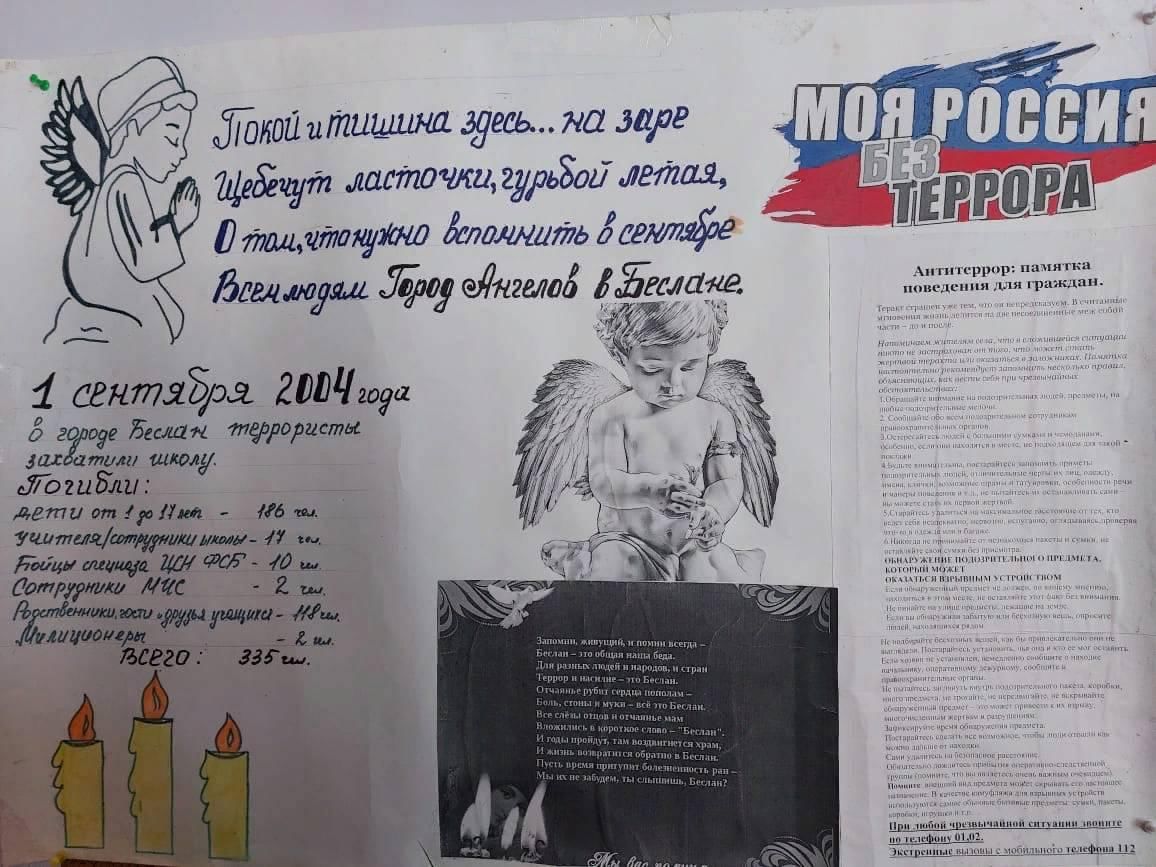 Покой и тишина здесь... на заре
Щебечут ласточки, гурьбой летая,
О том, что нужно вспомнить в сентябре
Всем людям Город Ангелов в Беслане.
1 сентября 2004 года
в городе Беслан террористы
захватили школу.
Погибли:
дети от 1 до 17 лет - 186 чел.
учителя/сотрудники школы - 17 чел.
Бойцы спецназа ЦСН ФСБ - 10 чел.
Сотрудники МЧС - 2 чел.
Родственники, гости и друзья учащихся - 118 чел.
Милиционеры - 2 чел.
ВСЕГО: 335 чел.
Запомни, живущий, и помни всегда –
Беслан – это общая наша беда.
Для разных людей и народов, и стран
Террор и насилие – это Беслан.
Отчаянье рубит сердца пополам –
Боль, стоны и муки – всё это Беслан.
Все слёзы отцов и отчаянье мам
Вложились в короткое слово – "Беслан".
И годы пройдут, там воздвигнется храм,
И жизнь возвратится обратно в Беслан.
Пусть время притупит болезненность ран –
Мы их не забудем, ты слышишь, Беслан?
Мы вас
МОЯ РОССИЯ
БЕЗ
ТЕРРОРА
Антитеррор: памятка
поведения для граждан.
Теракт страшен уже тем, что он непредсказуем. В считанные
мгновения жизнь делится на две несоединенные меж собой
части – до и после.
Напоминаем жителям села, что в сложившейся ситуации
никто не застрахован от того, что может стать
жертвой теракта или оказаться в заложниках. Памятка
настоятельно рекомендует запомнить несколько правил,
объясняющих, как вести себя при чрезвычайных
обстоятельствах:
1.Обращайте внимание на подозрительных людей, предметы, на
любые подозрительные мелочи.
2. Сообщайте обо всем подозрительном сотрудникам
правоохранительных органов.
3.Остерегайтесь людей с большими сумками и чемоданами,
особенно, если они находятся в месте, не подходящем для такой
поклажи.
4.Будьте внимательны, постарайтесь запомнить приметы
подозрительных людей, отличительные черты их лиц, одежду,
имена, клички, возможные шрамы и татуировки, особенности речи
и манеры поведения и т.д., не пытайтесь их останавливать сами –
вы можете стать их первой жертвой.
5.Старайтесь удалиться на максимальное расстояние от тех, кто
ведет себя неадекватно, нервозно, испуганно, оглядываясь, проверяя
что-то в одежде или в багаже.
6.Никогда не принимайте от незнакомцев пакеты и сумки, не
оставляйте свои сумки без присмотра.
ОБНАРУЖЕНИЕ ПОДОЗРИТЕЛЬНОГО ПРЕДМЕТА,
КОТОРЫЙ МОЖЕТ
ОКАЗАТЬСЯ ВЗРЫВНЫМ УСТРОЙСТВОМ
Если обнаруженный предмет не должен, по вашему мнению,
находиться в этом месте, не оставляйте этот факт без внимания.
Не пинайте на улице предметы, лежащие на земле.
Если вы обнаружили забытую или бесхозную вещь, опросите
людей, находящихся рядом.
Не подбирайте бесхозных вещей, как бы привлекательно они не
выглядели. Постарайтесь установить, чья она и кто ее мог оставить.
Если хозяин не установлен, немедленно сообщите о находке
начальнику, оперативному дежурному, сообщите в
правоохранительные органы.
Не пытайтесь заглянуть внутрь подозрительного пакета, коробки,
иного предмета, не трогайте, не передвигайте, не вскрывайте
обнаруженный предмет – это может привести к их взрыву,
многочисленным жертвам и разрушениям.
Зафиксируйте время обнаружения предмета.
Постарайтесь сделать все возможное, чтобы люди отошли как
можно дальше от находки.
Сами удалитесь на безопасное расстояние.
Обязательно дождитесь прибытия оперативно-следственной
группы (помните, что вы являетесь очень важным очевидцем).
Помните: внешний вид предмета может скрывать его настоящее
назначение. В качестве камуфляжа для взрывных устройств
используются самые обычные бытовые предметы: сумки, пакеты,
коробки, игрушки и т.п.
При любой чрезвычайной ситуации звоните
по телефону 01,02.
Экстренные вызовы с мобильного телефона 112